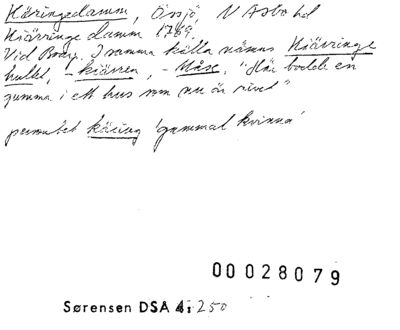 Käringedamm, Össjö, N Åsbo hd
Kiärringe Damm 1769.
Vid Braej. I samma källa nämns Kiärringe
hultet, - kiärren, - Måse, "Här bodde en
gumma i ett hus som nu är rivet"
personbet käring 'gammal kvinna'
00028079
Sørensen DSA 4: 250